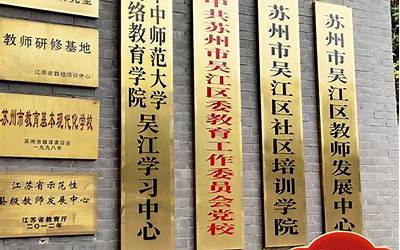 究室
教师研修基地
江苏省教师培训中心
苏州市教育基本现代化学校
苏州市教育委员会
一九九八年
江苏省示范性
县级教师发展中心
江苏省教育厅
二〇一二年
中师范大学
络教育学院
吴江学习中心
中共苏州市吴江区委教育工作委员会党校
苏州市吴江区社区培训学院
苏州市吴江区教师发展中心